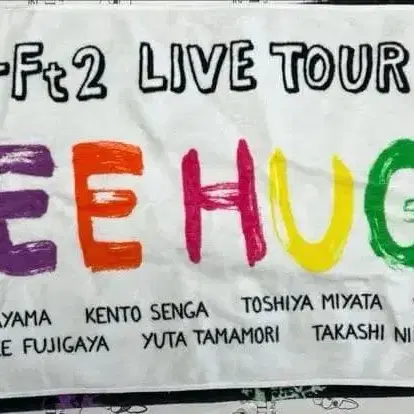 -Ft2 LIVE TOUR
EE HUG
AYAMA KENTO SENGA TOSHIYA MIYATA
E FUJIGAYA YUTA TAMAMORI TAKASHI NI